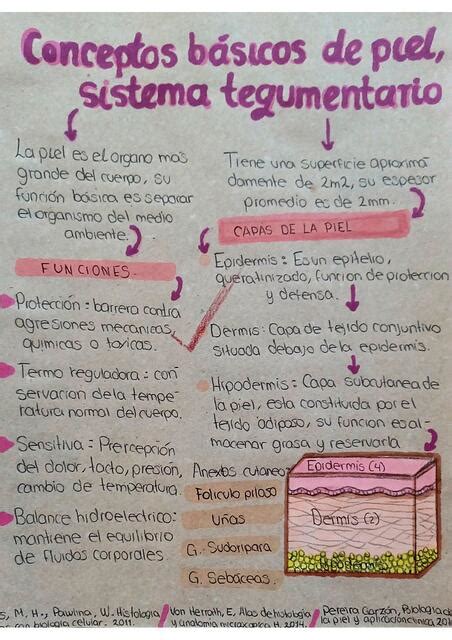 Conceptos básicos de piel,
sistema tegumentario
La piel es el organo mas
grande del cuerpo, su
función básica es separar
el organismo del medio
ambiente.
FUNCIONES.
Protección: barrera contra
agresiones mecanicas,
quimicas o toxicas.
Termo reguladora: con
servacion de la tempe-
ratura normal del cuerpo.
Sensitiva: Prercepción
del dolor, tacto, presión,
cambio de temperatura.
Balance hidroelectrico:
mantiene el equilibrio
de fluidos corporales
Tiene una superficie aproxima
damente de 2m2, su espesor
promedio es de 2mm.
CAPAS DE LA PIEL
Epidermis: Es un epitelio,
queratinizado, funcion de proteccion
y defensa.
Dermis: Capa de tejido conjuntivo
situada debajo de la epidermis.
Hipodermis: Capa subcutanea de
la piel, esta constituida por el
tejido adiposo, su funcion es al-
macenar grasa y reservarla
Anexos cutaneo:
Foliculo piloso
Uñas
G. Sudoripara
G. Sebáceas.
Epidermis (4)
Dermis (2)
Hipodermis
M. H., Pawlina, W. Histologia
con biologia celular. 2011.
Von Herrath, E, Atlas de histologia
y anatomia microscopica H. 2014.
Pereira Garzón, Biologia de
la piel y aplicación clinica, 201